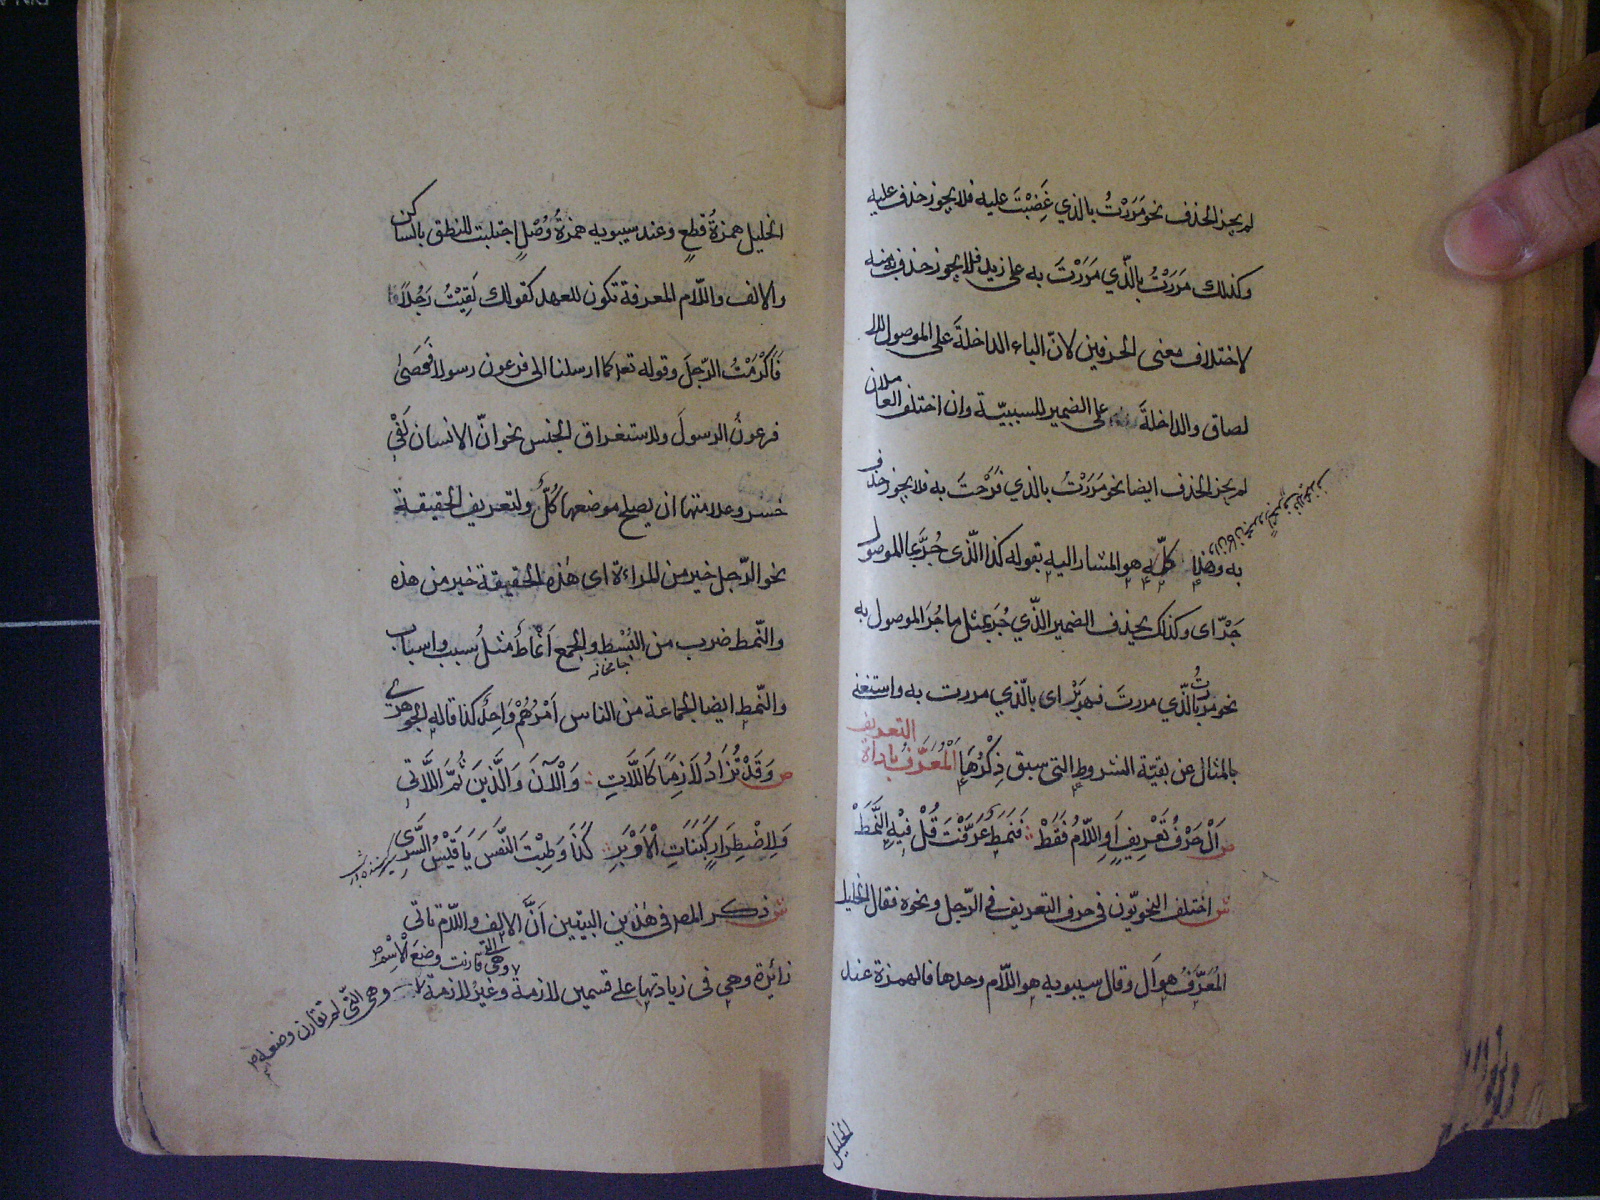 لم يجز الحذف نحو مَرَرْتُ بالذي غَضِبْتَ عليه فلا يجوز حذف عليه
وكذلك مَرَرْتُ بالّذي مَرَرْتَ به على زيد فلا يجوز حذف به منه
لاختلاف معنى الحرفين لانّ الباء الداخلةَ على الموصول للا
لصاق والداخلةَ على الضمير للسببيّة وان اختلف العاملان
لم يجز الحذف ايضا نحو مَرَرْتُ بالذي فَرِحْتَ به فلا يجوز حذف
به وهذا كلّه هو المشار اليه بقوله كذا الّذى جُرَّ بما الموصول
جَرّ اى وكذلك يحذف الضمير الذّي جُرَ بمثل ما جُرَ الموصول به
نحو مُرّ بالّذي مررتَ فهو بَرّ اى بالّذي مررت به واستغنى
بالمثال عن بقيّة الشروط التى سبق ذِكْرُهَا اَلْمُعَرَّفُ باداة
التعريف
ص اَلْ حَرْفُ تَعْرِيفٍ اَوِ اللّامُ فَقَطْ فَنَمَطٌ عَرَّفْتَ قُلْ فِيْهِ النَّمَطْ
ش اختلف النحويّون فى حرف التعريف فى الرّجل ونحوه فقال الخليل
المُعَرِّفُ هو اَل وقال سيبويه هو اللّام وحدها فالهمزة عند
الخليل
الخليل همزةُ قطعٍ وعند سيبويه همزةُ وُصْلٍ اجتلبت للنطق بالساكن
والالف واللّام المعرفة تكون للعهد كقولك لَقِيْتُ رَجُلاً
فَاَكْرَمْتُ الرّجلَ وقوله تعه كما ارسلنا الى فرعون رسولا فَعَصَىٰ
فرعونُ الرسولَ ولاستغراق الجنس نحو انّ الانسان لَفْي
خسر وعلامتها ان يصلح موضعها كُلٌّ ولتعريف الحقيقة
نحو الرّجل خير من المراءة اى هٰذه الحقيقة خير من هذه
والنّمط ضرب من البُسْط والجمع اَنْمَاط مثلُ سبب واسباب
والنّمط ايضا الجماعة من الناس اَمْرُهُمْ وَاحِدٌ كذا قاله الجوهرى
ص وَقَدْ تُزَادُ لَازِمًا كَاللَّاتِ وَالْآنَ وَالَّذِينَ ثُمَّ اللَّاتِي
وَلِاِضْطِرَارٍ كَبَنَاتِ الْاَوْبَرِ كَذَا وَطِبْتَ النَّفْسَ يَا قَيْسُ السَّرِي
ش ذكر المص فى هٰذين البيتين اَنَّ الالف واللّام تاتى
وهى التى قارنت وضعَ الْاِسْم ص
زائدة وهى فى زيادتها على قسمين لازمة وغيرُ لازمة
وهى التّى لم تقارن وضعه ص